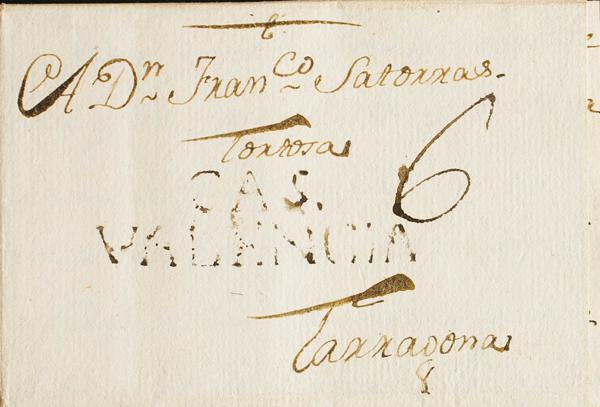 A Dn Franco Saterras
Tortosa
6
CAS.
VALENCIA
Tarragona
8